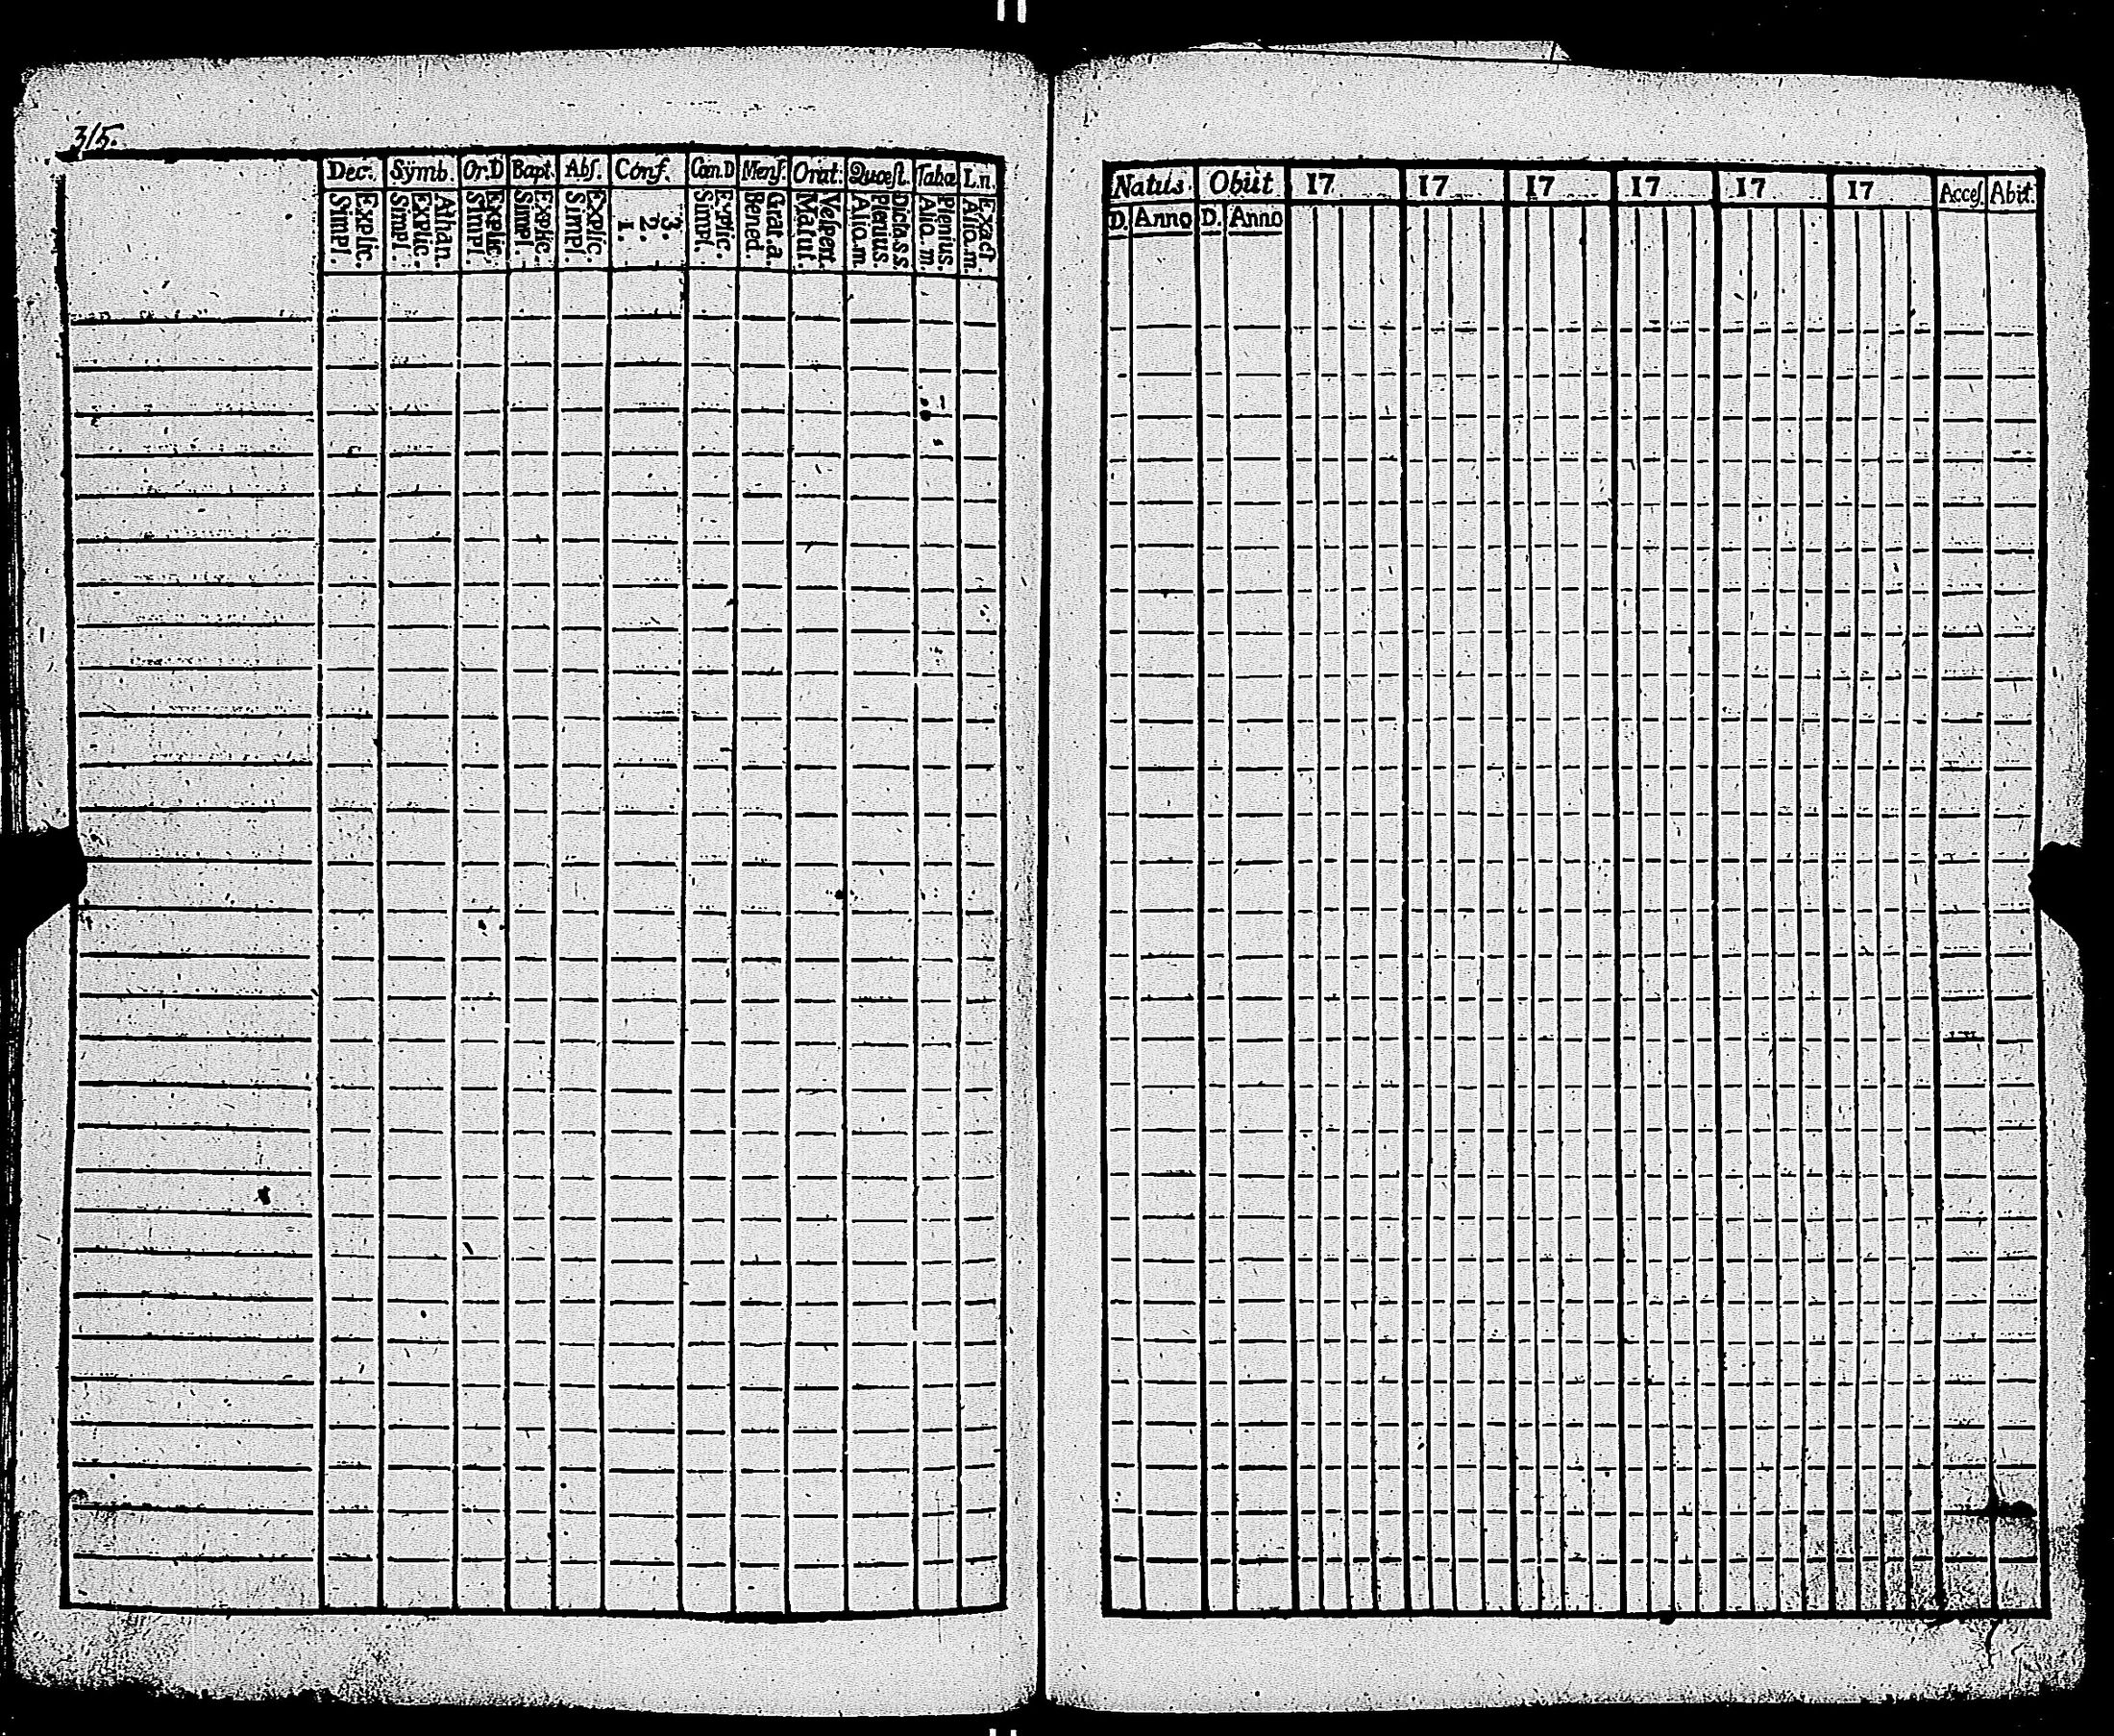 315.
Dec. Symb. Or.D Bapt. Abſ. Conf. Cœn.D Menſ. Orat. Quæſt. Tabæ L.n.
Simpl. Explic. Simpl. Explic. Athan. Simpl. Explic. Simpl. Explic. Simpl. Explic. 1. 2. 3. Simpl. Explic. Bened. Grat.a. Matut. Veſpert. Alio.m. Plenius. Dicta.s.s. Alio.m Plenius. Alio.m. Exact
Natus. Obiit 17 17 17 17 17 17 Acceſ. Abit.
D. Anno D. Anno